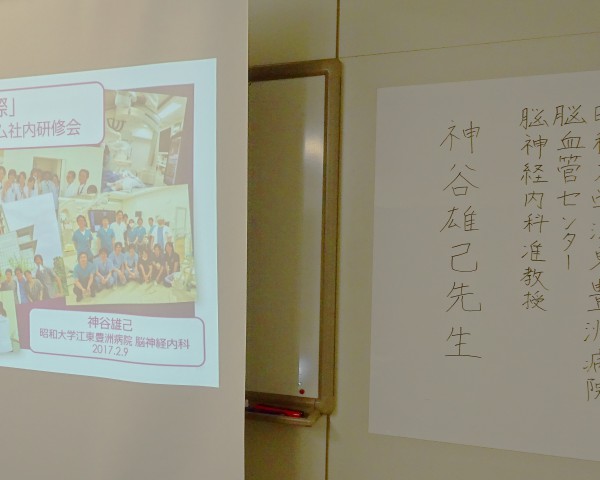 際」
ム社内研修会
神谷雄己
昭和大学江東豊洲病院 脳神経内科
2017.2.9
昭和大学江東豊洲病院
脳血管センター
脳神経内科准教授
神谷雄己先生